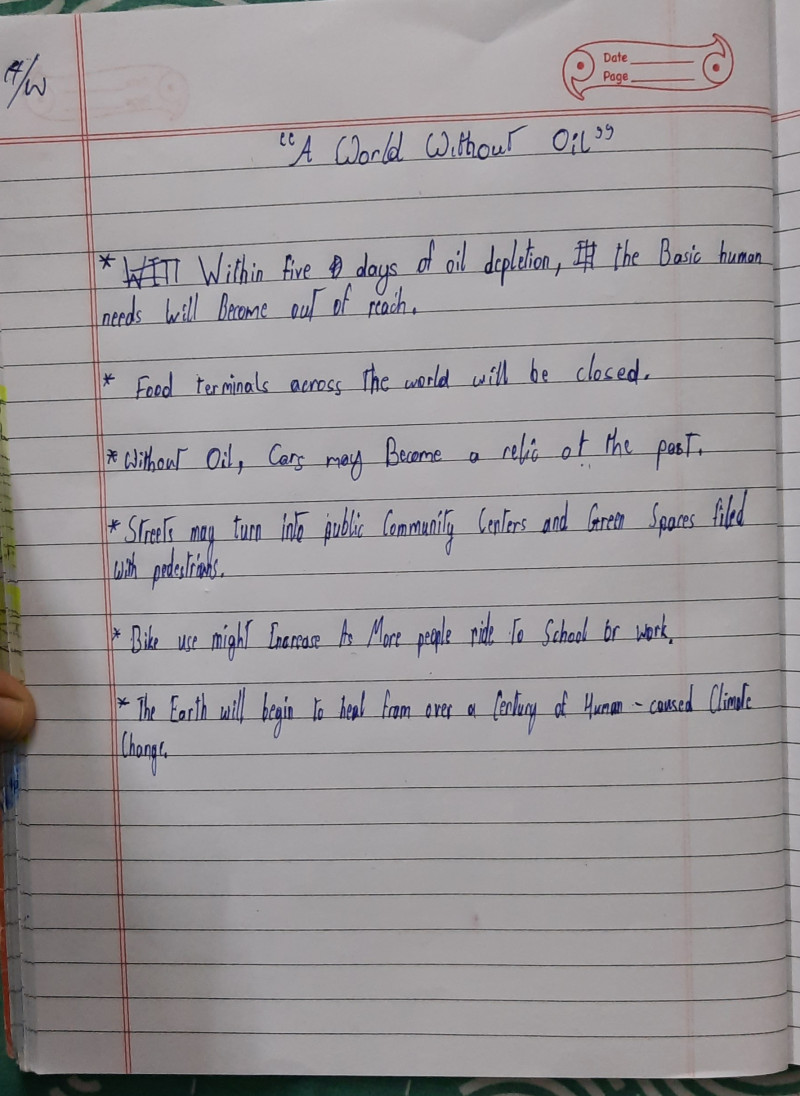 H/W
Date
Page
"A World Without Oil"
* Within five days of oil depletion, the Basic human
needs will Become out of reach.
* Food terminals across the world will be closed.
* Without Oil, Cars may Become a relic of the past.
* Streets may turn into public Community Centers and Green Spaces filed
with pedestrians.
* Bike use might Increase As More people ride to School or work.
* The Earth will begin to heal from over a Century of Human-caused Climate
Change.